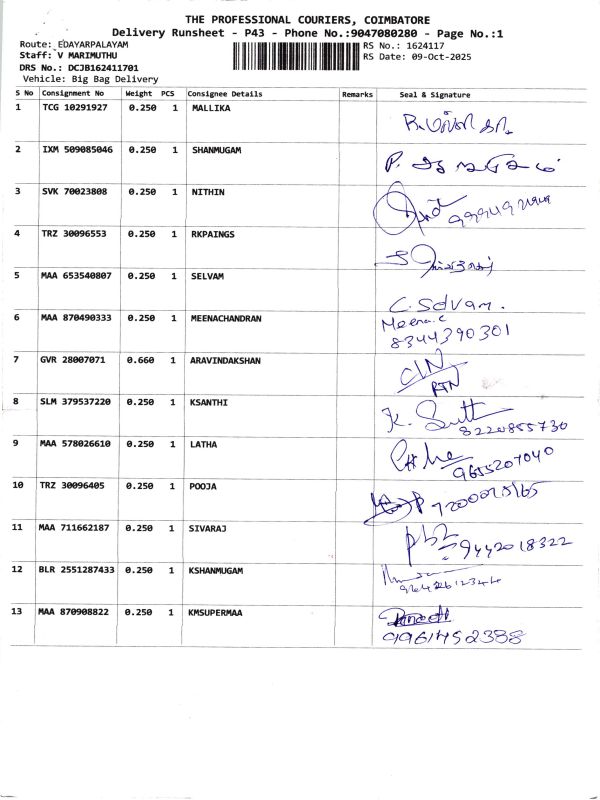 THE PROFESSIONAL COURIERS, COIMBATORE
Delivery Runsheet - P43 - Phone No.:9047080280 - Page No.:1
Route: EDAYARPALAYAM
RS No.: 1624117
Staff: V MARIMUTHU
RS Date: 09-Oct-2025
DRS No.: DCJB162411701
Vehicle: Big Bag Delivery
S No Consignment No Weight PCS Consignee Details Remarks Seal & Signature
1 TCG 10291927 0.250 1 MALLIKA
2 IXM 509085046 0.250 1 SHANMUGAM
3 SVK 70023808 0.250 1 NITHIN
4 TRZ 30096553 0.250 1 RKPAINGS
5 MAA 653540807 0.250 1 SELVAM
C. Selvam.
6 MAA 870490333 0.250 1 MEENACHANDRAN
Meena.c
8344390301
7 GVR 28007071 0.660 1 ARAVINDAKSHAN
RTN
8 SLM 379537220 0.250 1 KSANTHI
8220855730
9 MAA 578026610 0.250 1 LATHA
9655207040
10 TRZ 30096405 0.250 1 POOJA
11 MAA 711662187 0.250 1 SIVARAJ
9442018322
12 BLR 2551287433 0.250 1 KSHANMUGAM
13 MAA 870908822 0.250 1 KMSUPERMAA
9961452388